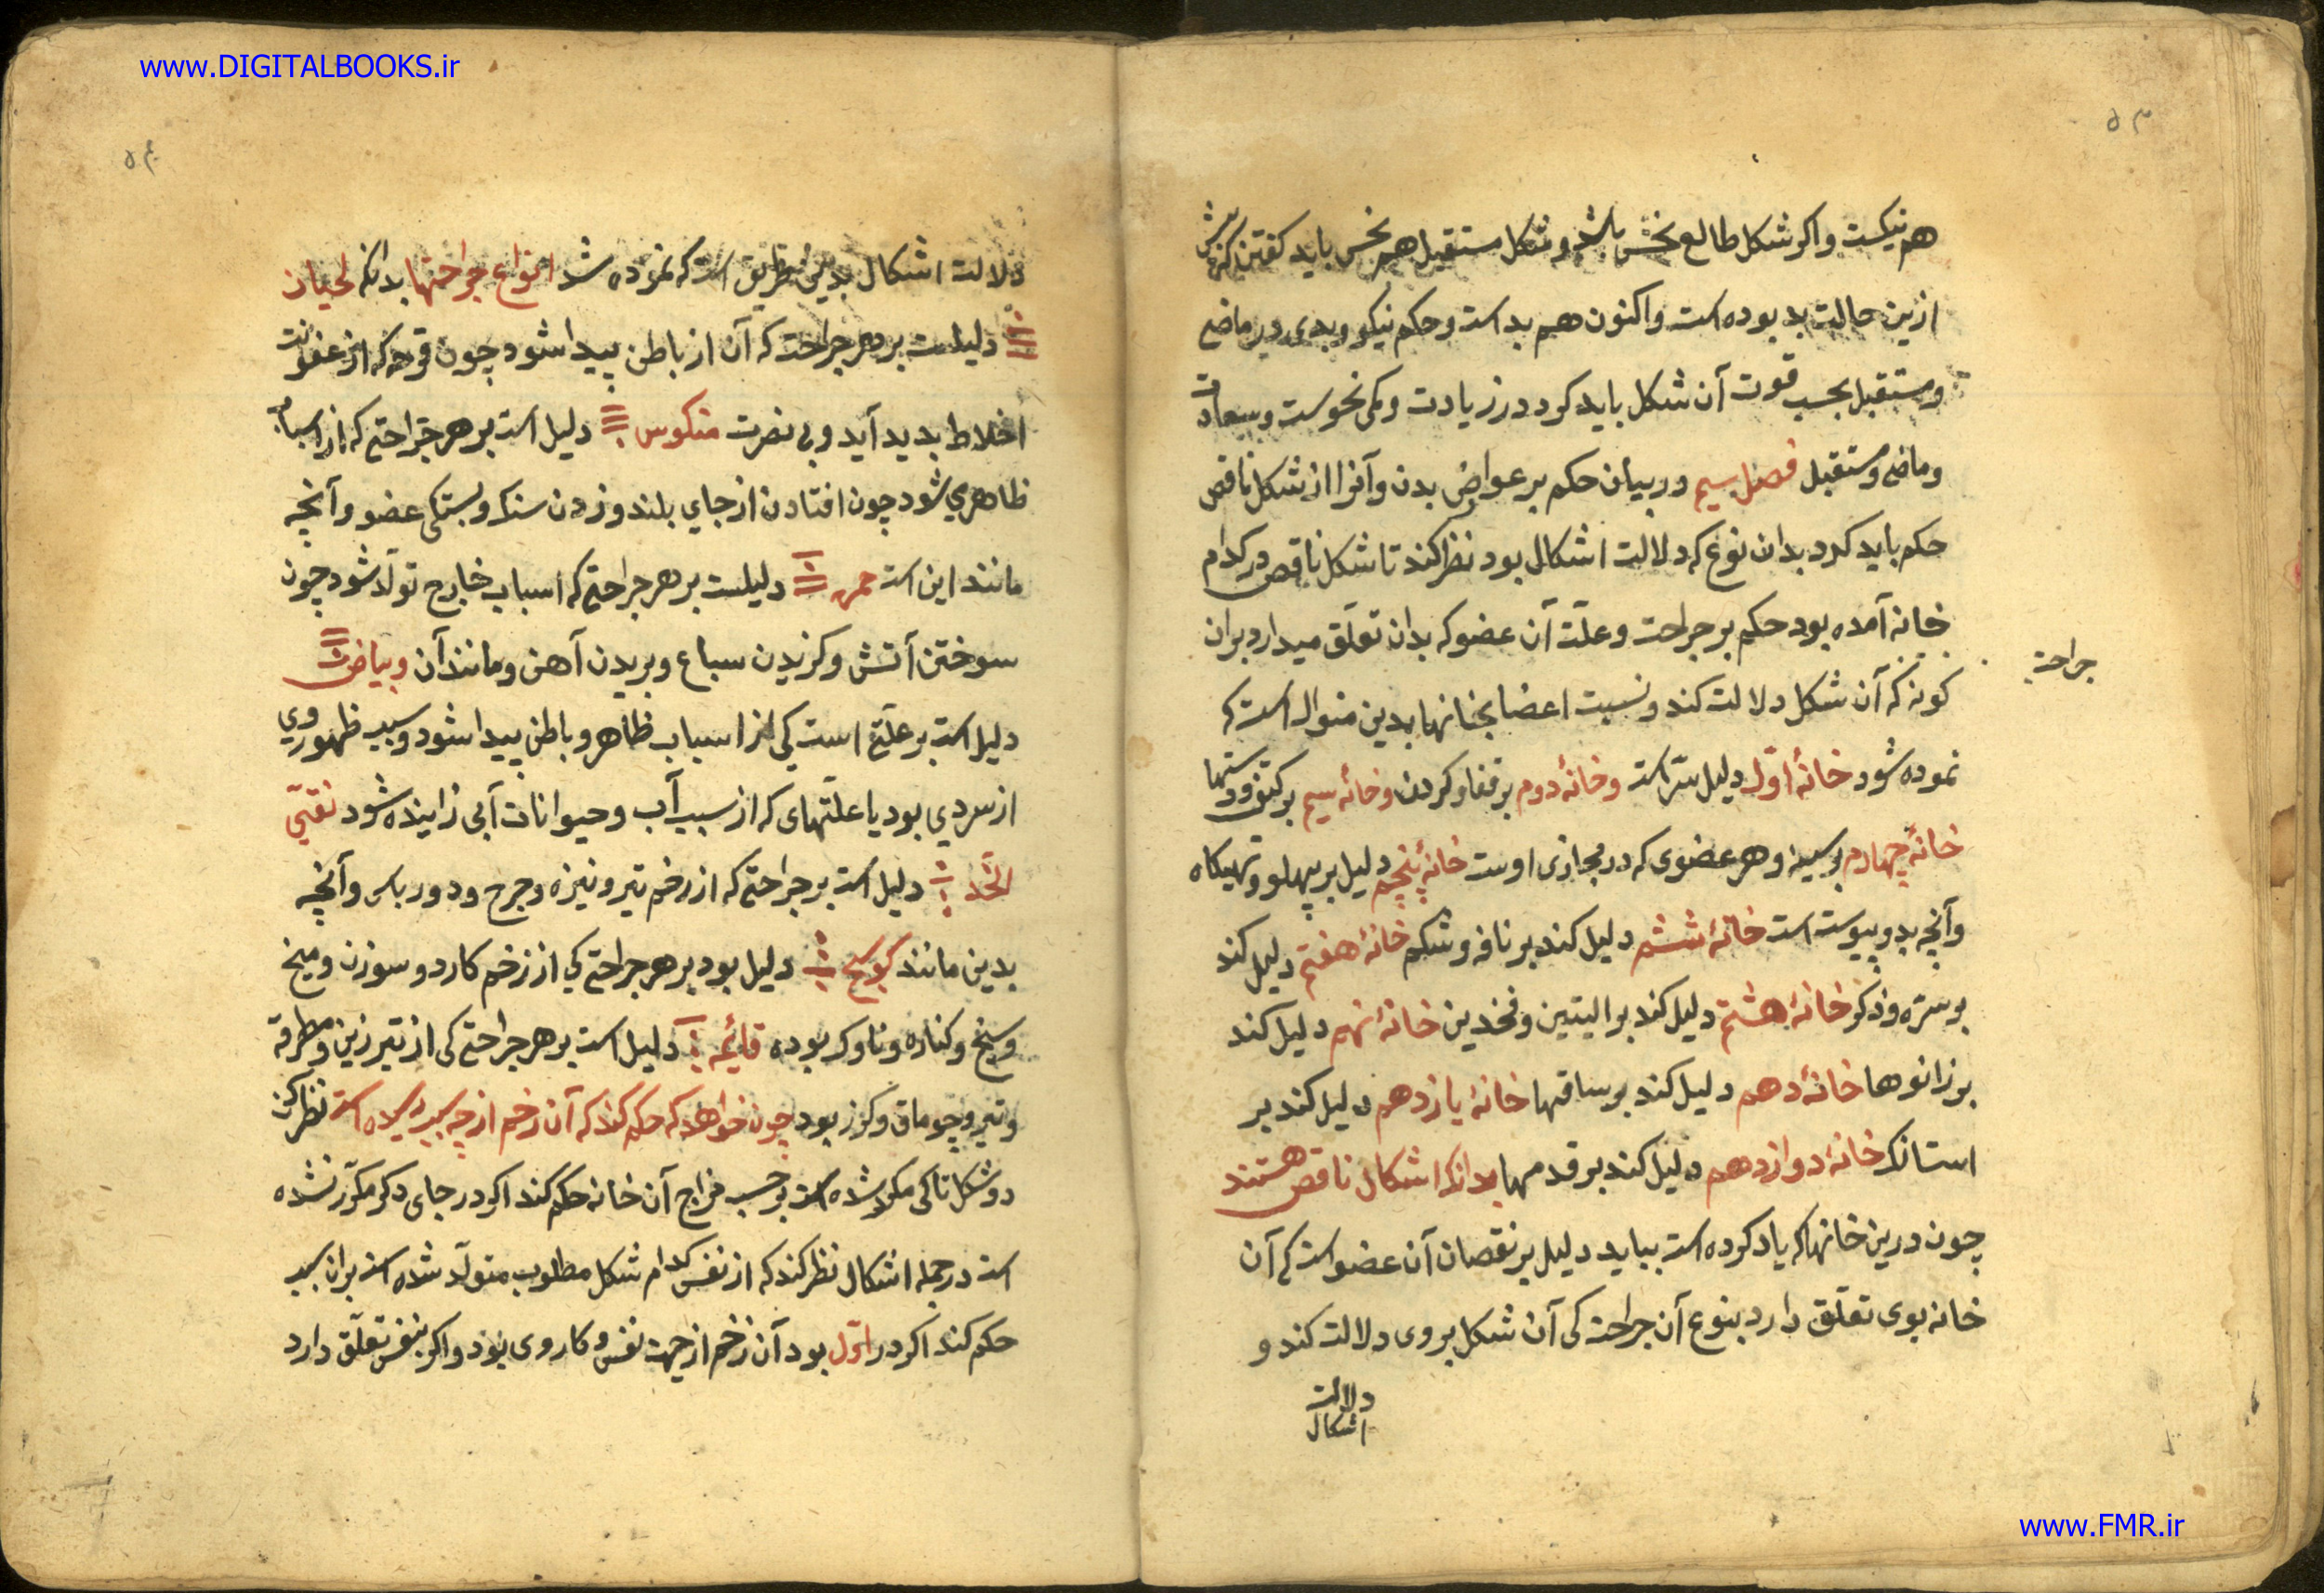 www.DIGITALBOOKS.ir
۵۳
هم نیکست و اکر شکل طالع نحس باشد و شکل مستقبل هم نحس باید کفتن که پیش
ازین حالت بد بوده است و اکنون هم بد است و حکم نیکو و بدی در ماضی
و مستقبل بحسب قوت آن شکل باید کرد در زیادت و کمی نحوست و سعادت
و ماضی و مستقبل فصل سیم در بیان حکم بر عوارض بدن و آنرا از شکل ناقص
حکم باید کرد بدان نوع که دلالت اشکال بود نظر کند تا شکل ناقص در کدام
خانه آمده بود حکم بر جراحت و علّت آن عضو که بدان تعلّق میدارد بران
جراحت
کونه که آن شکل دلالت کند و نسبت اعضا بخانها بدین منوال است که
نموده شود خانهٔ اوّل دلیل سَر است و خانهٔ دوم بر قفا و کردن و خانهٔ سیم بر کتف و دستها
خانهٔ چهارم بر سینه و هر عضوی که در مجازی اوست خانهٔ پنجم دلیل بر پهلو و تهیکاه
و آنچه بدو پیوسته است خانهٔ ششم دلیل کند بر نافه و شکم خانهٔ هفتم دلیل کند
بر سرّه و ذکر خانهٔ هشتم دلیل کند بر الیتین و فخدین خانهٔ نهم دلیل کند
بر زانوها خانهٔ دهم دلیل کند بر ساقها خانهٔ یازدهم دلیل کند بر
استانک خانهٔ دوازدهم دلیل کند بر قدمها بدانک اشکال ناقص هستند
چون درین خانها که یاد کرده است بیاید دلیل بر نقصان آن عضو است که آن
خانه بوی تعلّق دارد بنوع آن جراحت کی آن شکل بروی دلالت کند و
دلالت
اشکال
۵۴
دلالت اشکال بدین طریق است که نموده شد انواع جراحتها بدانکه لحیان
دلیلست بر هر جراحت که آن از باطن پیدا شود چون قرحه که از عفونت
اخلاط بدید آید و بی ضربت منکوس دلیل است بر هر جراحتی که از اسباب
ظاهری شود چون افتادن از جای بلند و زدن سنک و بستکی عضو و آنچه
مانند این است حمره دلیلست بر هر جراحتی که اسباب خارج تولّد شود چون
سوختن آتش و کزیدن سباع و بریدن آهن و مانند آن و بیاض
دلیل است بر علّتی است کی از اسباب ظاهر و باطن پیدا شود و سبب ظهور وی
از سردی بود یا علّتهای که از سبب آب و حیوانات آبی زاینده شود نقیّ
الخّد دلیل است بر جراحتی که از زخم تیر و نیزه و جرح و دورباس و آنچه
بدین مانند کوسج دلیل بود بر هر جراحتی کی از زخم کارد و سوزن و میخ
و سیخ و کناره و ناوک بوده قایمه دلیل است بر هر جراحتی کی از تبرزین و مطرقه
و تبر و چوماق و کرز بود چون خواهد که حکم کند که آن زخم از چه سبب رسیده است نظر کن
دو شکل تا کی مکرر شده است بر حسب مزاج آن خانه حکم کند اکر در جای دکر مکرّر نشده
است در جمله اشکال نظر کند که از نفس کدام شکل مطلوب متولّد شده است بران سبب
حکم کند اکر در اوّل بود آن زخم از جهت نفس و کار وی بود و اکر بنفس تعلّق دارد
www.FMR.ir